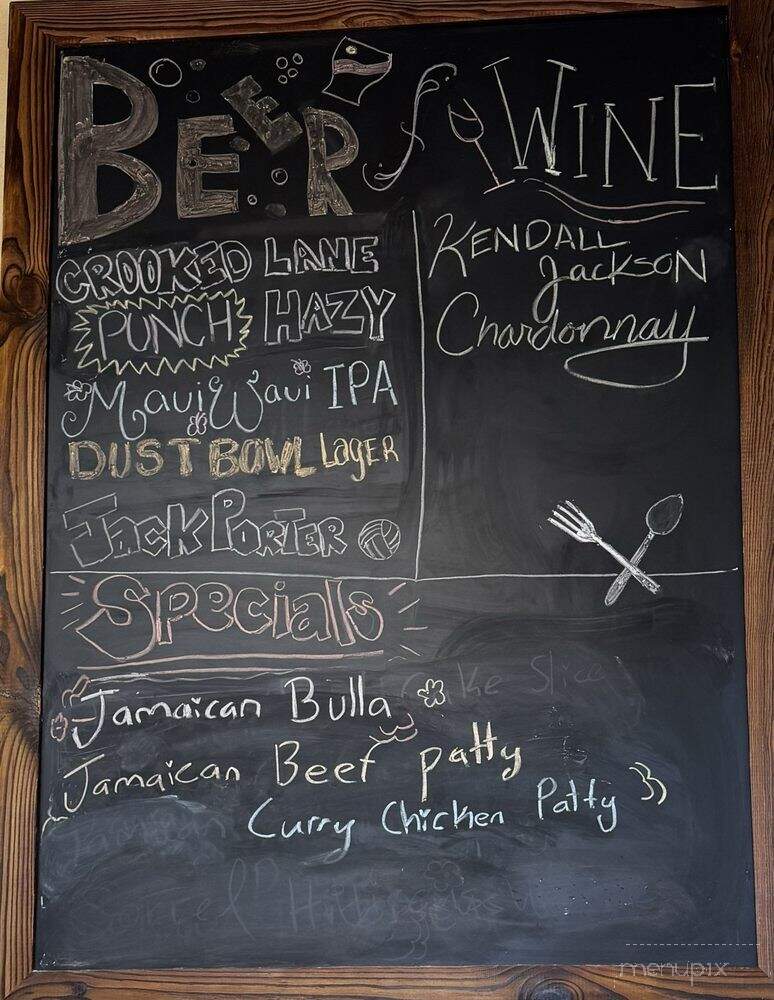 BEER
& WINE
CROOKED LANE
PUNCH HAZY
Maui Waui IPA
DUST BOWL LAGER
JACK PORTER
KENDALL
JACKSON
Chardonnay
Specials
Cake Slice
Jamaican Bulla
Jamaican Beef patty
Jamaican
Curry Chicken Patty
Sorrel Hibiscus
menupix